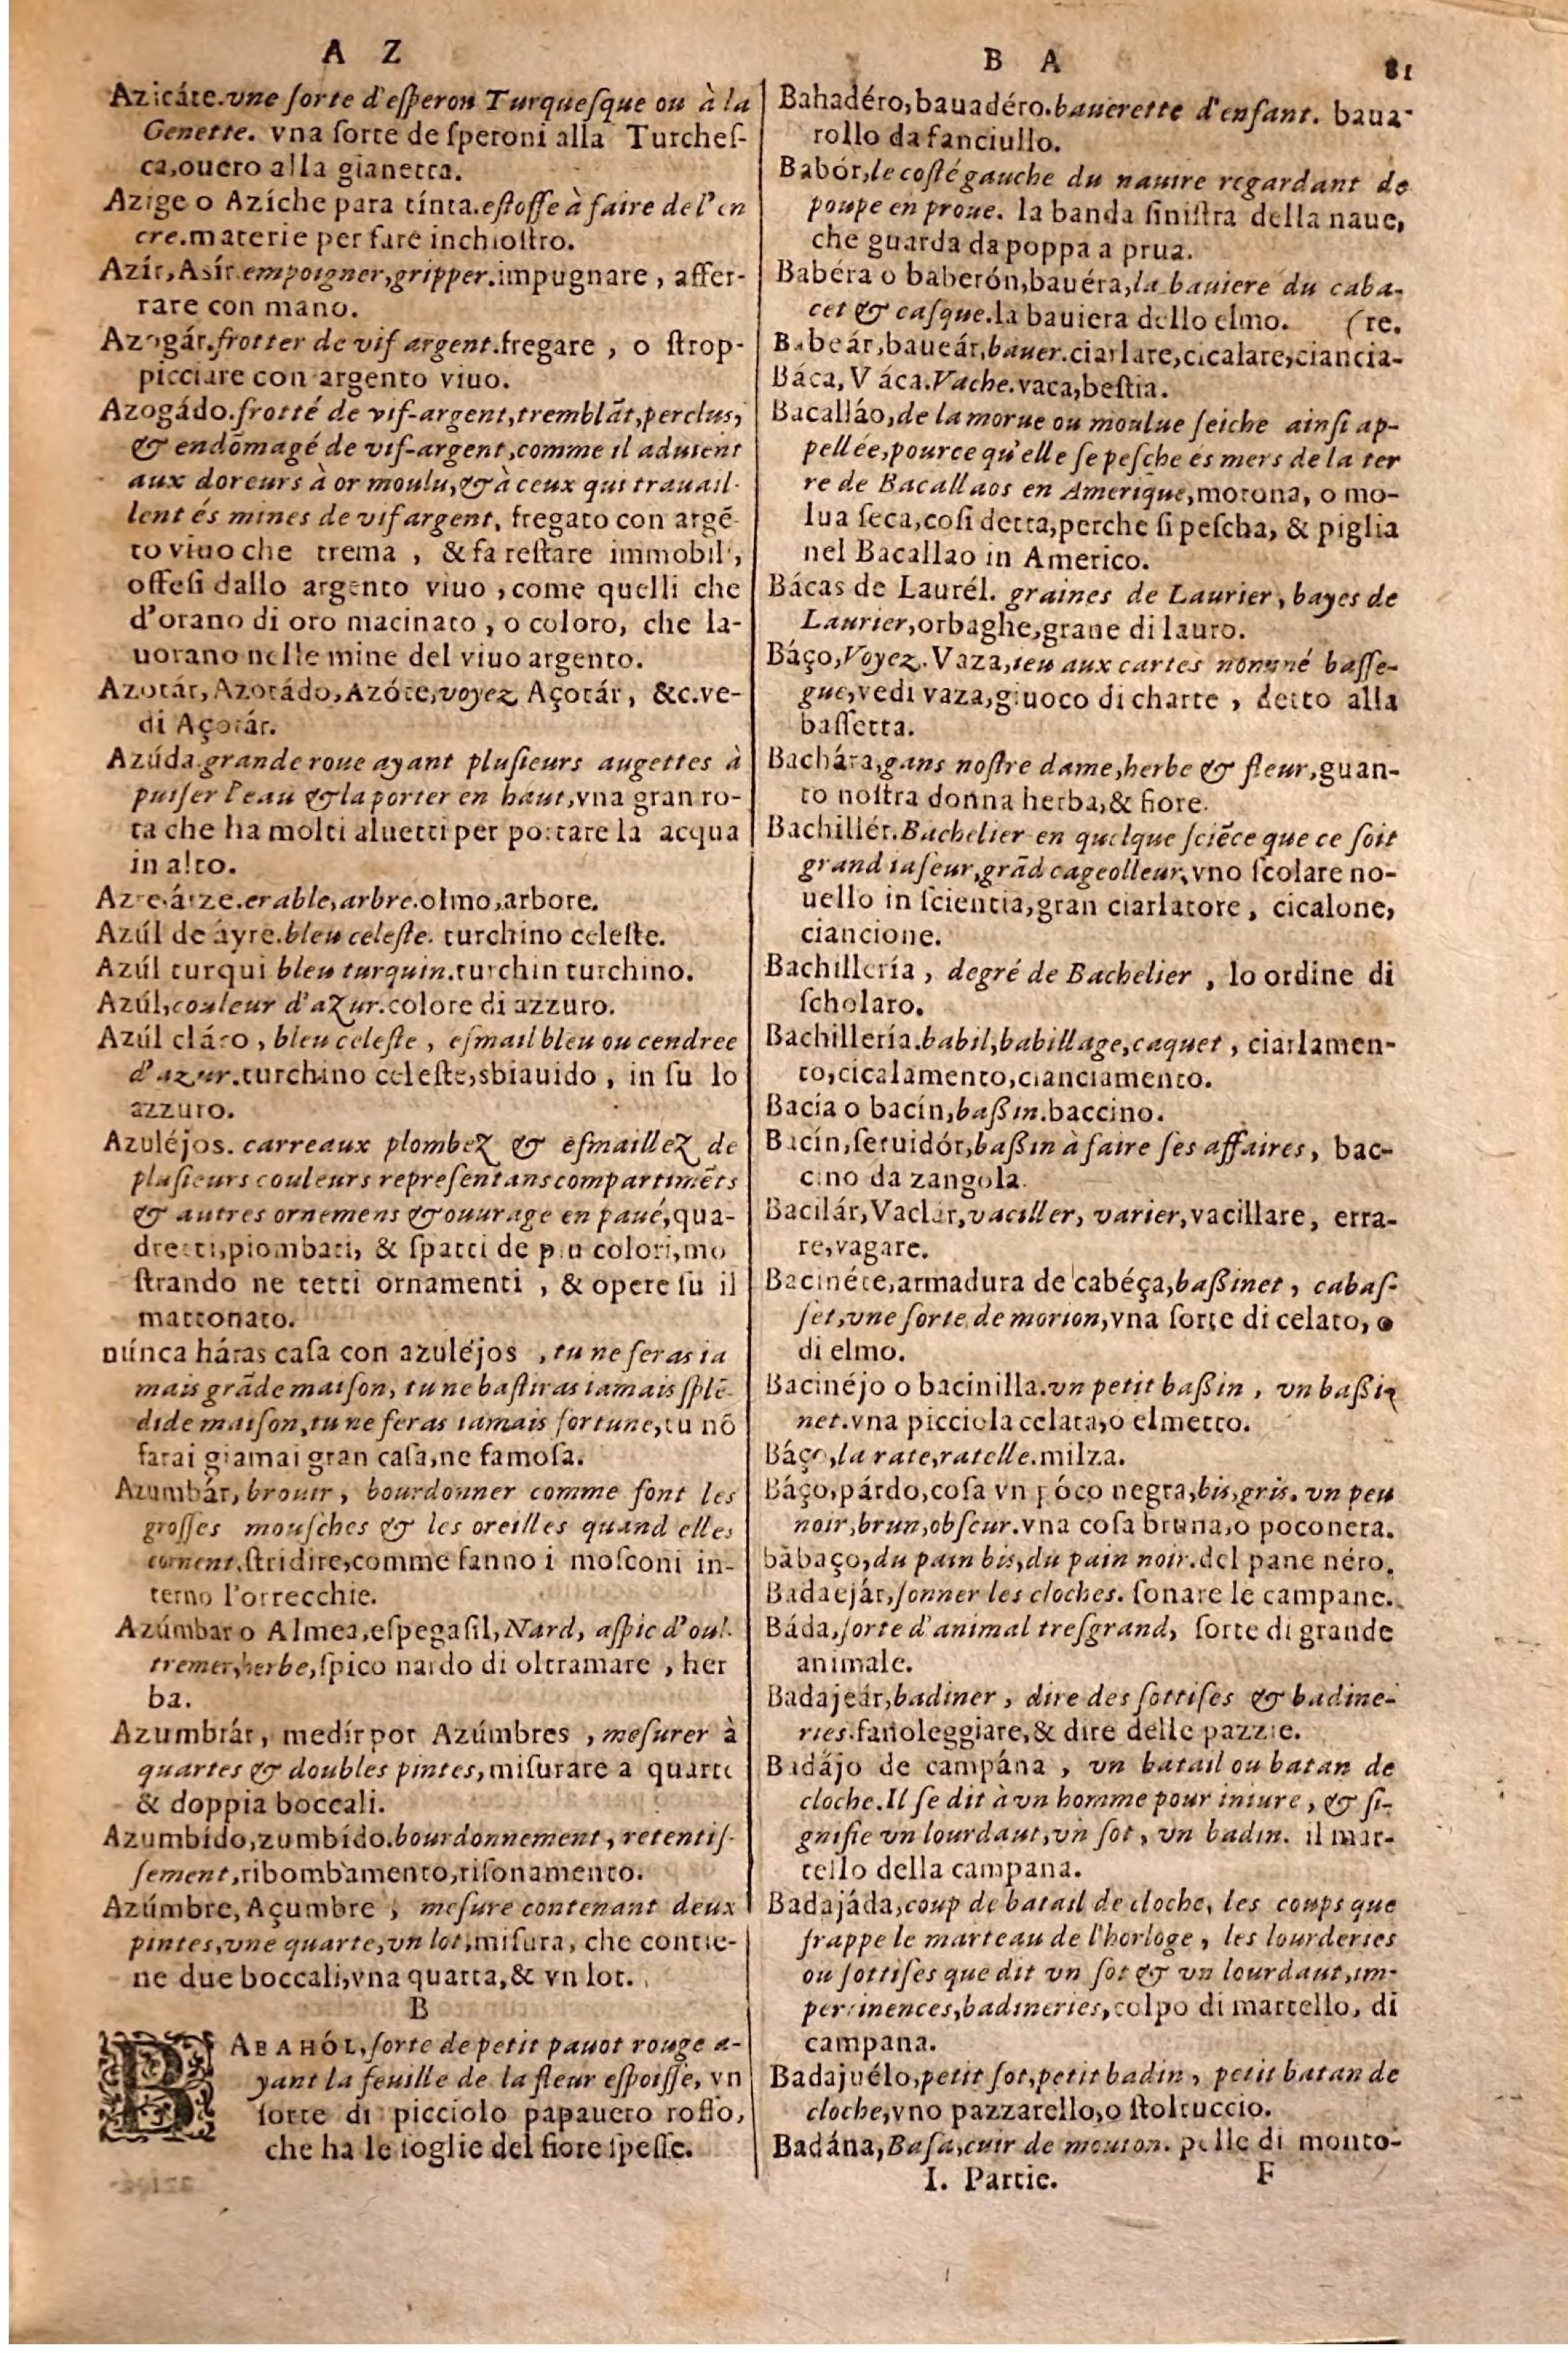 A Z
Azicáte.vne ſorte d'eſperon Turqueſque ou à la
Genette. vna ſorte de ſperoni alla Turcheſ-
ca,ouero alla gianetta.
Azige o Azíche para tínta.eſtoffe à faire de l'en
cre.materie per fare inchioſtro.
Azír, Asír.empoigner,gripper.impugnare , affer-
rare con mano.
Azogár.frotter de vif argent.fregare , o ſtrop-
picciare con argento viuo.
Azogádo.frotté de vif-argent,tremblãt,perclus,
& endõmagé de vif-argent,comme il aduient
aux doreurs à or moulu,& à ceux qui trauail-
lent és mines de vif argent, fregato con argẽ-
to viuo che trema , & fa reſtare immobili,
offeſi dallo argento viuo ,come quelli che
d'orano di oro macinato , o coloro, che la-
uorano nelle mine del viuo argento.
Azotár, Azotádo, Azóte,voyez Açotár, &c.ve-
di Açotár.
Azúda.grande roue ayant pluſieurs augettes à
puiſer l'eau & la porter en haut,vna gran ro-
ta che ha molti aluetti per portare la acqua
in alto.
erable,arbre.olmo,arbore.
Azúl de áyre.bleu celeſte. turchino celeſte.
Azúl turqui bleu turquin.turchin turchino.
Azúl,couleur d'azur.colore di azzuro.
Azúl cláro , bleu celeſte , eſmail bleu ou cendree
d'azur.turchino celeſte,sbiauido , in ſu lo
azzuro.
Azuléjos. carreaux plombez & eſmaillez de
pluſieurs couleurs repreſentans compartimẽts
& autres ornemens & ouurage en paué,qua-
dretti,piombati, & ſpatti de piu colori,mo
ſtrando ne tetti ornamenti , & opere ſu il
mattonato.
núnca háras caſa con azuléjos , tu ne feras ia
mais grãde maiſon, tu ne baſtiras iamais ſplẽ-
dide maiſon,tu ne feras iamais fortune,tu nõ
farai giamai gran caſa,ne famoſa.
Azumbár, brouir , bourdonner comme font les
groſſes mouſches & les oreilles quand elles
cornent.ſtridire,comme fanno i moſconi in-
terno l'orrecchie.
Azúmbar o Almea,eſpegaſil,Nard, aſpic d'oul-
tremer,herbe,ſpico nardo di oltramare , her
ba.
Azumbrár, medír por Azúmbres , meſurer à
quartes & doubles pintes,miſurare a quarte
& doppia boccali.
Azumbído,zumbído.bourdonnement, retentiſ-
ſement,ribombamento,riſonamento.
Azúmbre, Açumbre , meſure contenant deux
pintes,vne quarte,vn lot,miſura, che contie-
ne due boccali,vna quarta,& vn lot.
B
BABAHÓL,ſorte de petit pauot rouge a-
yant la feuille de la fleur eſpoiſſe, vn
ſorte di picciolo papauero roſſo,
che ha le foglie del fiore ſpeſſe.
B A 81
Bahadéro,bauadéro.bauerette d'enfant. baua-
rollo da fanciullo.
Babór,le coſté gauche du nauire regardant de
poupe en proue. la banda ſiniſtra della naue,
che guarda da poppa a prua.
Babéra o baberón,bauéra,la bauiere du caba-
cet & caſque.la bauiera dello elmo. (re.
Babeár,baueár,bauer.ciarlare,cicalare,ciancia-
Báca, V áca.Vache.vaca,beſtia.
Bacalláo,de la morue ou moulue ſeiche ainſi ap-
pellée,pource qu'elle ſe peſche és mers de la ter
re de Bacallaos en Amerique,morona, o mo-
lua ſeca,coſi detta,perche ſi peſcha, & piglia
nel Bacallao in Americo.
Bácas de Laurél. graines de Laurier , bayes de
Laurier,orbaghe,grane di lauro.
Báço,Voyez.Vaza,ieu aux cartes nommé baſſe-
gue,vedi vaza,giuoco di charte , detto alla
baſſetta.
Bachára,gans noſtre dame,herbe & fleur,guan-
to noſtra donna herba,& fiore.
Bachillér.Bachelier en quelque ſciẽce que ce ſoit
grand iaſeur,grãd cageolleur,vno ſcolare no-
uello in ſcientia,gran ciarlatore , cicalone,
ciancione.
Bachillería , degré de Bachelier , lo ordine di
ſcholaro.
Bachillería.babil,babillage,caquet , ciarlamen-
to,cicalamento,cianciamento.
Bacía o bacín,baßin.baccino.
Bacín,ſeruidór,baßin à faire ſes affaires, bac-
cino da zangola.
Bacilár, Vaclár,vaciller, varier,vacillare, erra-
re,vagare.
Bacinéte,armadura de cabéça,baßinet , cabaſ-
ſet,vne ſorte de morion,vna ſorte di celato, o
di elmo.
Bacinéjo o bacinilla.vn petit baßin , vn baßi
net.vna picciola celata,o elmetto.
Báço,la rate,ratelle.milza.
Báço,párdo,coſa vn póco negra,bis,gris. vn peu
noir,brun,obſcur.vna coſa bruna,o poconera.
bàbaço,du pain bis,du pain noir.del pane néro.
Badaejár,ſonner les cloches. ſonare le campane.
Báda,ſorte d'animal treſgrand, ſorte di grande
animale.
Badajeár,badiner , dire des ſottiſes & badine-
ries.fanoleggiare,& dire delle pazzie.
Badájo de campána , vn batail ou batan de
cloche.Il ſe dit à vn homme pour iniure , & ſi-
gnifie vn lourdaut,vn ſot, vn badin. il mar-
tello della campana.
Badajáda,coup de batail de cloche, les coups que
frappe le marteau de l'horloge , les lourderies
ou ſottiſes que dit vn ſot & vn lourdaut,im-
pertinences,badineries,colpo di martello, di
campana.
Badajuélo,petit ſot,petit badin , petit batan de
cloche,vno pazzarello,o ſtoltuccio.
Badána,Baſa,cuir de mouton. pelle di monto-
I. Partie. F